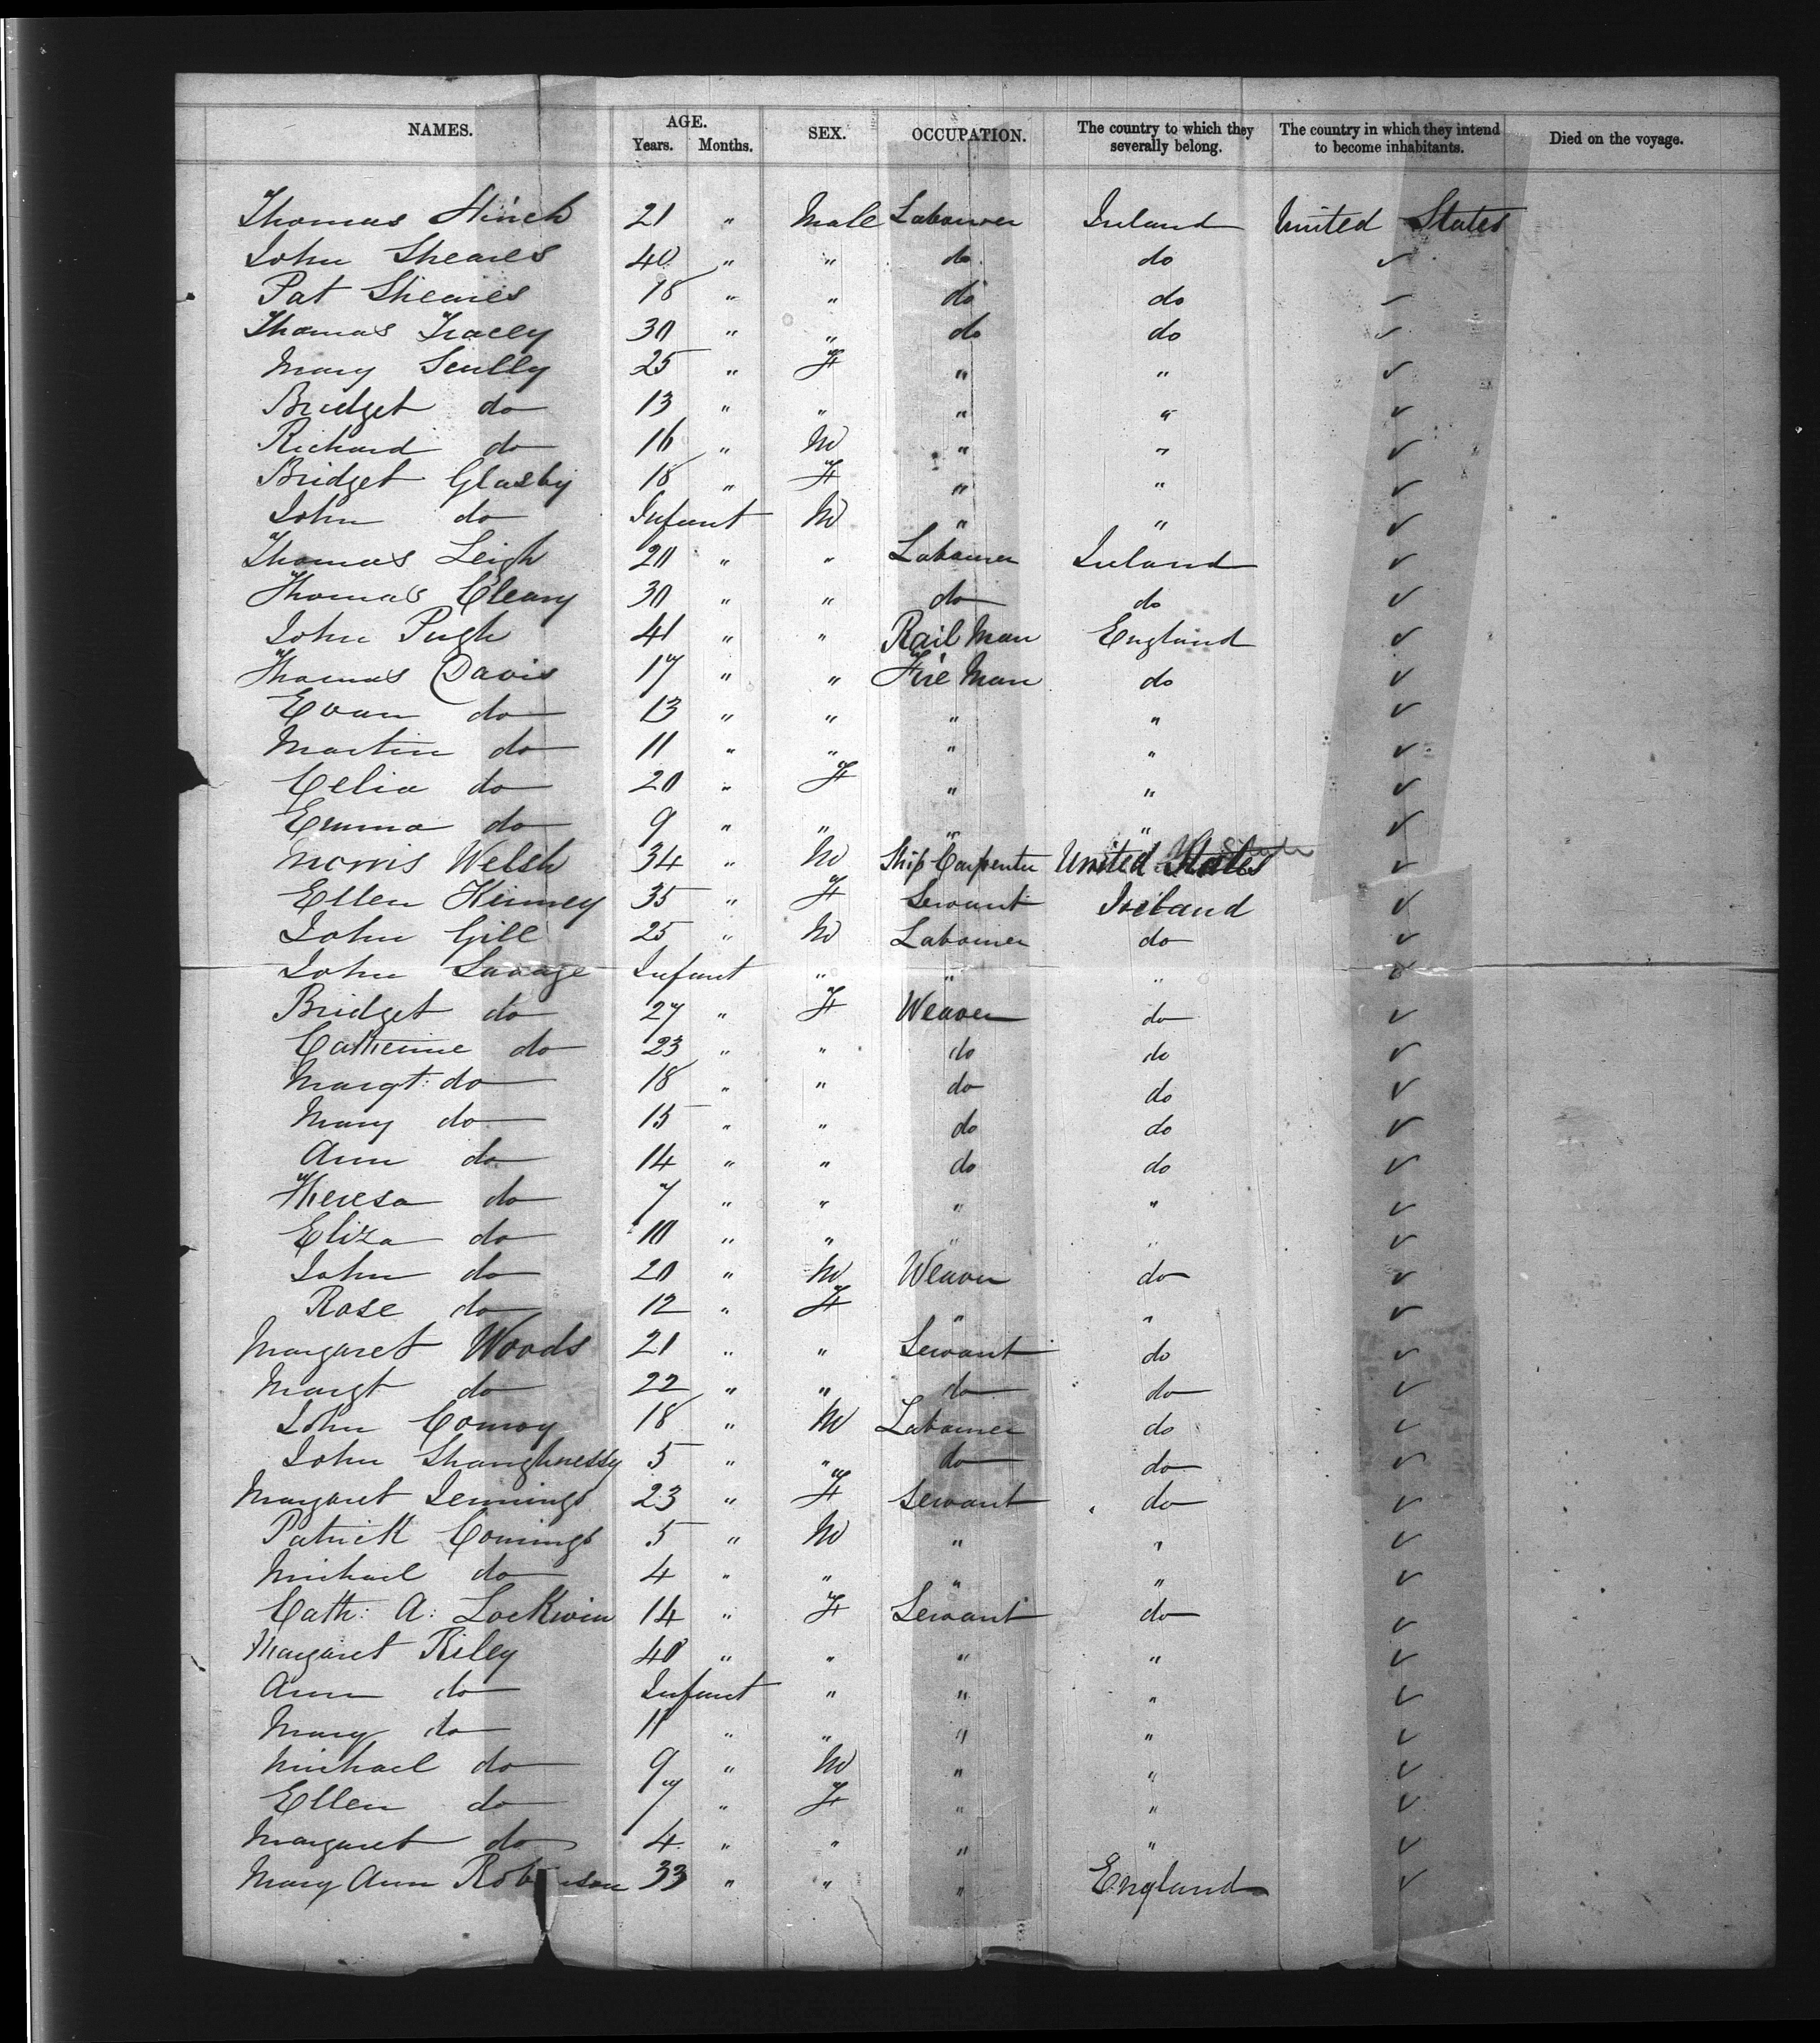 NAMES. AGE. Years. Months. SEX. OCCUPATION. The country to which they severally belong. The country in which they intend to become inhabitants. Died on the voyage.
Thomas Hinch 21 " Male Labourer Ireland United States
John Sheares 40 " " do do ✓
Pat Sheares 18 " " do do ✓
Thomas Tracey 30 " " do do ✓
Mary Scully 25 " F " " ✓
Bridget do 13 " " " " ✓
Richard do 16 " M " " ✓
Bridget Glasby 18 " F " " ✓
John do Infant M " " ✓
Thomas Leigh 20 " " Labourer Ireland ✓
Thomas Cleary 30 " " do do ✓
John Pugh 41 " " Rail Man England ✓
Thomas Davis 17 " " Fire Man do ✓
Evan do 13 " " " " ✓
Martin do 11 " " " " ✓
Celia do 20 " F " " ✓
Emma do 9 " " " " ✓
Morris Welsh 34 " M Ship Carpenter United States ✓
Ellen Kinney 35 " F Servant Ireland ✓
John Gill 25 " M Labourer do ✓
John Savage Infant " " " ✓
Bridget do 27 " F Weaver do ✓
Catherine do 23 " " do do ✓
Margt: do 18 " " do do ✓
Mary do 15 " " do do ✓
Ann do 14 " " do do ✓
Theresa do 7 " " " " ✓
Eliza do 10 " " " " ✓
John do 20 " M Weaver do ✓
Rose do 12 " F " " ✓
Margaret Woods 21 " " Servant do ✓
Margt do 22 " " do do ✓
John Conroy 18 " M Labourer do ✓
John Shanghnessy 5 " " do do ✓
Margaret Jennings 23 " F Servant do ✓
Patrick Comings 5 " M " " ✓
Michael do 4 " " " " ✓
Cath: A: Lockwin 14 " F Servant do ✓
Margaret Riley 40 " " " " ✓
Ann do Infant " " " ✓
Mary do 11 " " " " ✓
Michael do 9 " M " " ✓
Ellen do 7 " F " " ✓
Margaret do 4 " " " " ✓
Mary Ann Robinson 33 " " " England ✓